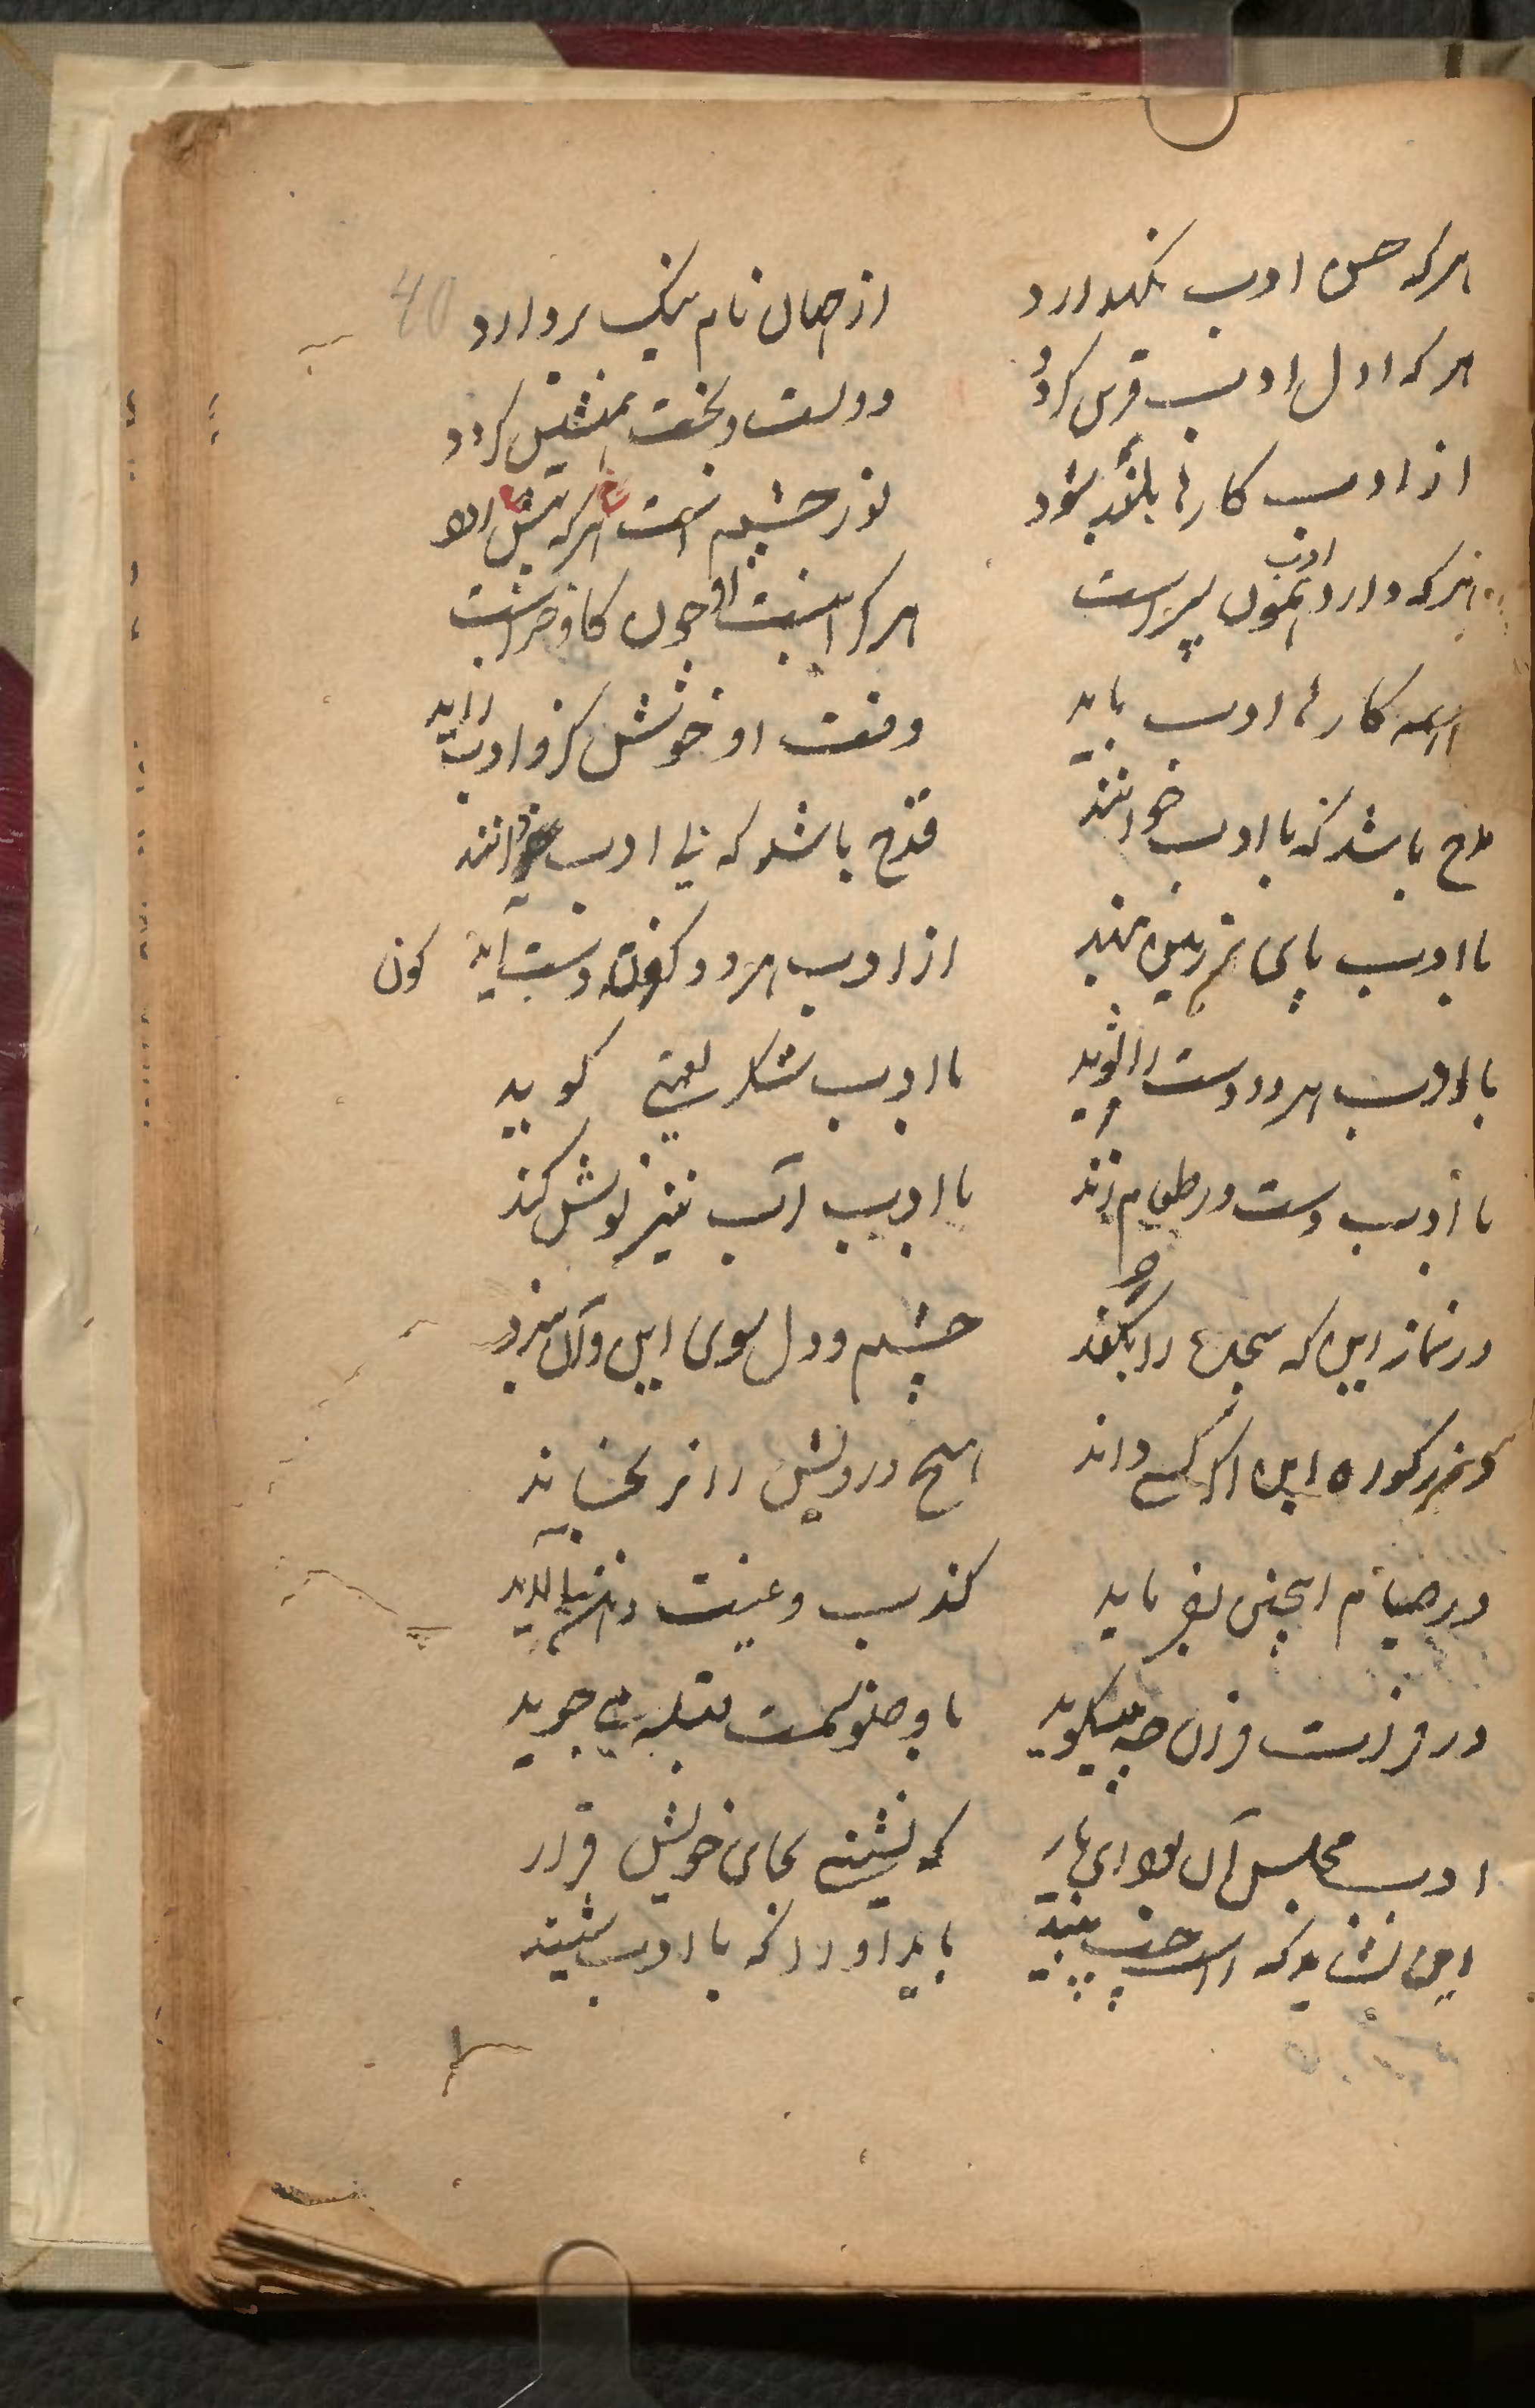 40
هر که حسن ادب نگهدارد از جهان نام نیک بردارد
هر که اول ادب قرین گردد دولت و بخت همنشین گردد
از ادب کارها بلند شود نور چشم است هر که پیش
هر که دارد ادب همون پسر است هر کرا نیست او چون گاو خر است
همه کارها ادب باید وقت او خوش کزو ادب آید
مدح باشد که با ادب خوانند قدح باشد که بی ادب خوانند
با ادب پای بر زمین نهد از ادب هر دو کون بدست آید کون
با ادب هر دو دست را شوید با ادب شکر نعمتی گوید
با ادب دست در طعام زند با ادب آب نیز نوش کند
در نماز این که سجده را بکند چشم و دل سوی این و آن نبرد
در زکوة این اگر کسی داند هیچ درویش را نرنجاند
در صیام اینچنین بفرماید کذب و غیبت
در قرائت قرآن چه میگوید با وضو سمت قبله می جوید
ادب مجلس آن بود ای یار که نشینی بجای خویش قرار
این نشاید که راست چپ بیند باید او را که با ادب شیند